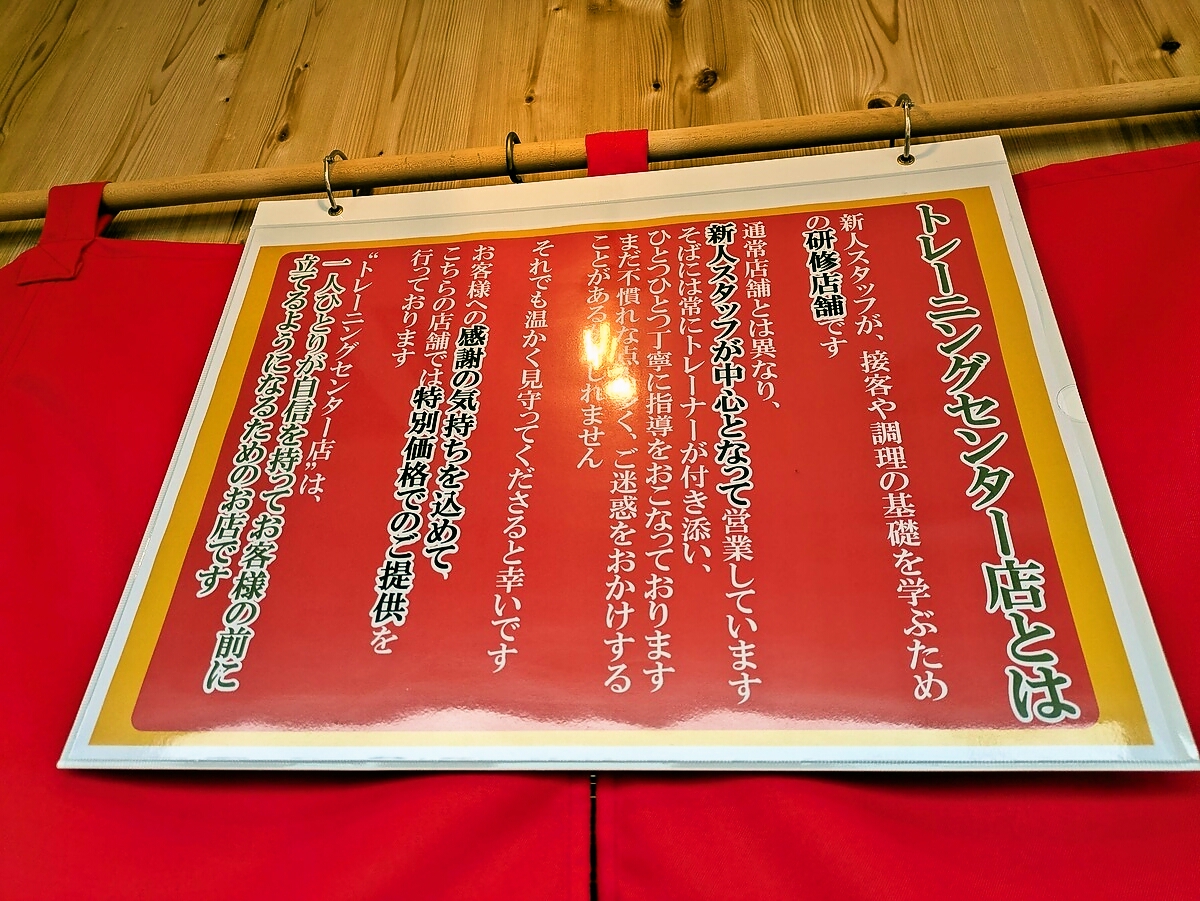 トレーニングセンター店とは
新人スタッフが、接客や調理の基礎を学ぶため
の研修店舗です
通常店舗とは異なり、
新人スタッフが中心となって営業しています
そばには常にトレーナーが付き添い、
ひとつひとつ丁寧に指導をおこなっております
まだ不慣れな点 く、ご迷惑をおかけする
ことがある しれません
それでも温かく見守ってくださると幸いです
お客様への感謝の気持ちを込めて、
こちらの店舗では特別価格でのご提供を
行っております
“トレーニングセンター店”は、
一人ひとりが自信を持ってお客様の前に
立てるようになるためのお店です